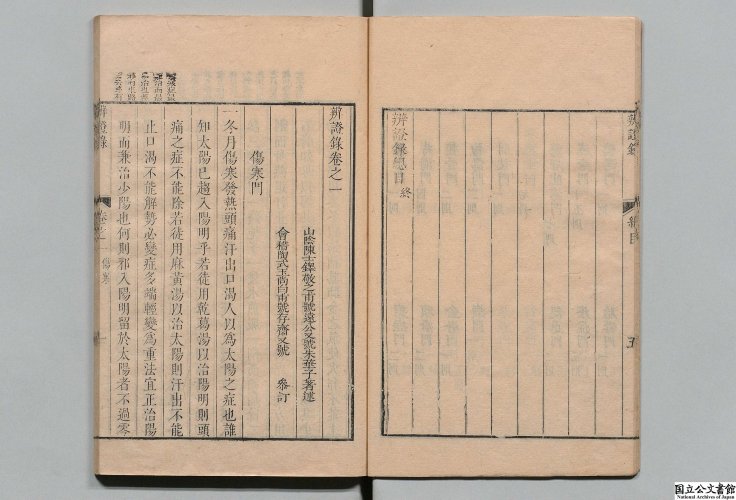 辨證錄
總目
五
辨證錄總目終
辨證錄卷之一
山陰陳士鐸敬之甫號遠公又號朱華子著述
會稽陶式玉尚白甫號存齋又號 參訂
傷寒門
一冬月傷寒發熱頭痛汗出口渴人以為太陽之症也誰
知太陽已趨入陽明乎若徒用乾葛湯以治陽明則頭
痛之症不能除若徒用麻黃湯以治太陽則汗出不能
止口渴不能解勢必變症多端輕變為重法宜正治陽
明而兼治少陽也何則邪入陽明留於太陽者不過零
辨證錄
卷之一 傷寒
一
国立公文書館
National Archives of Japan